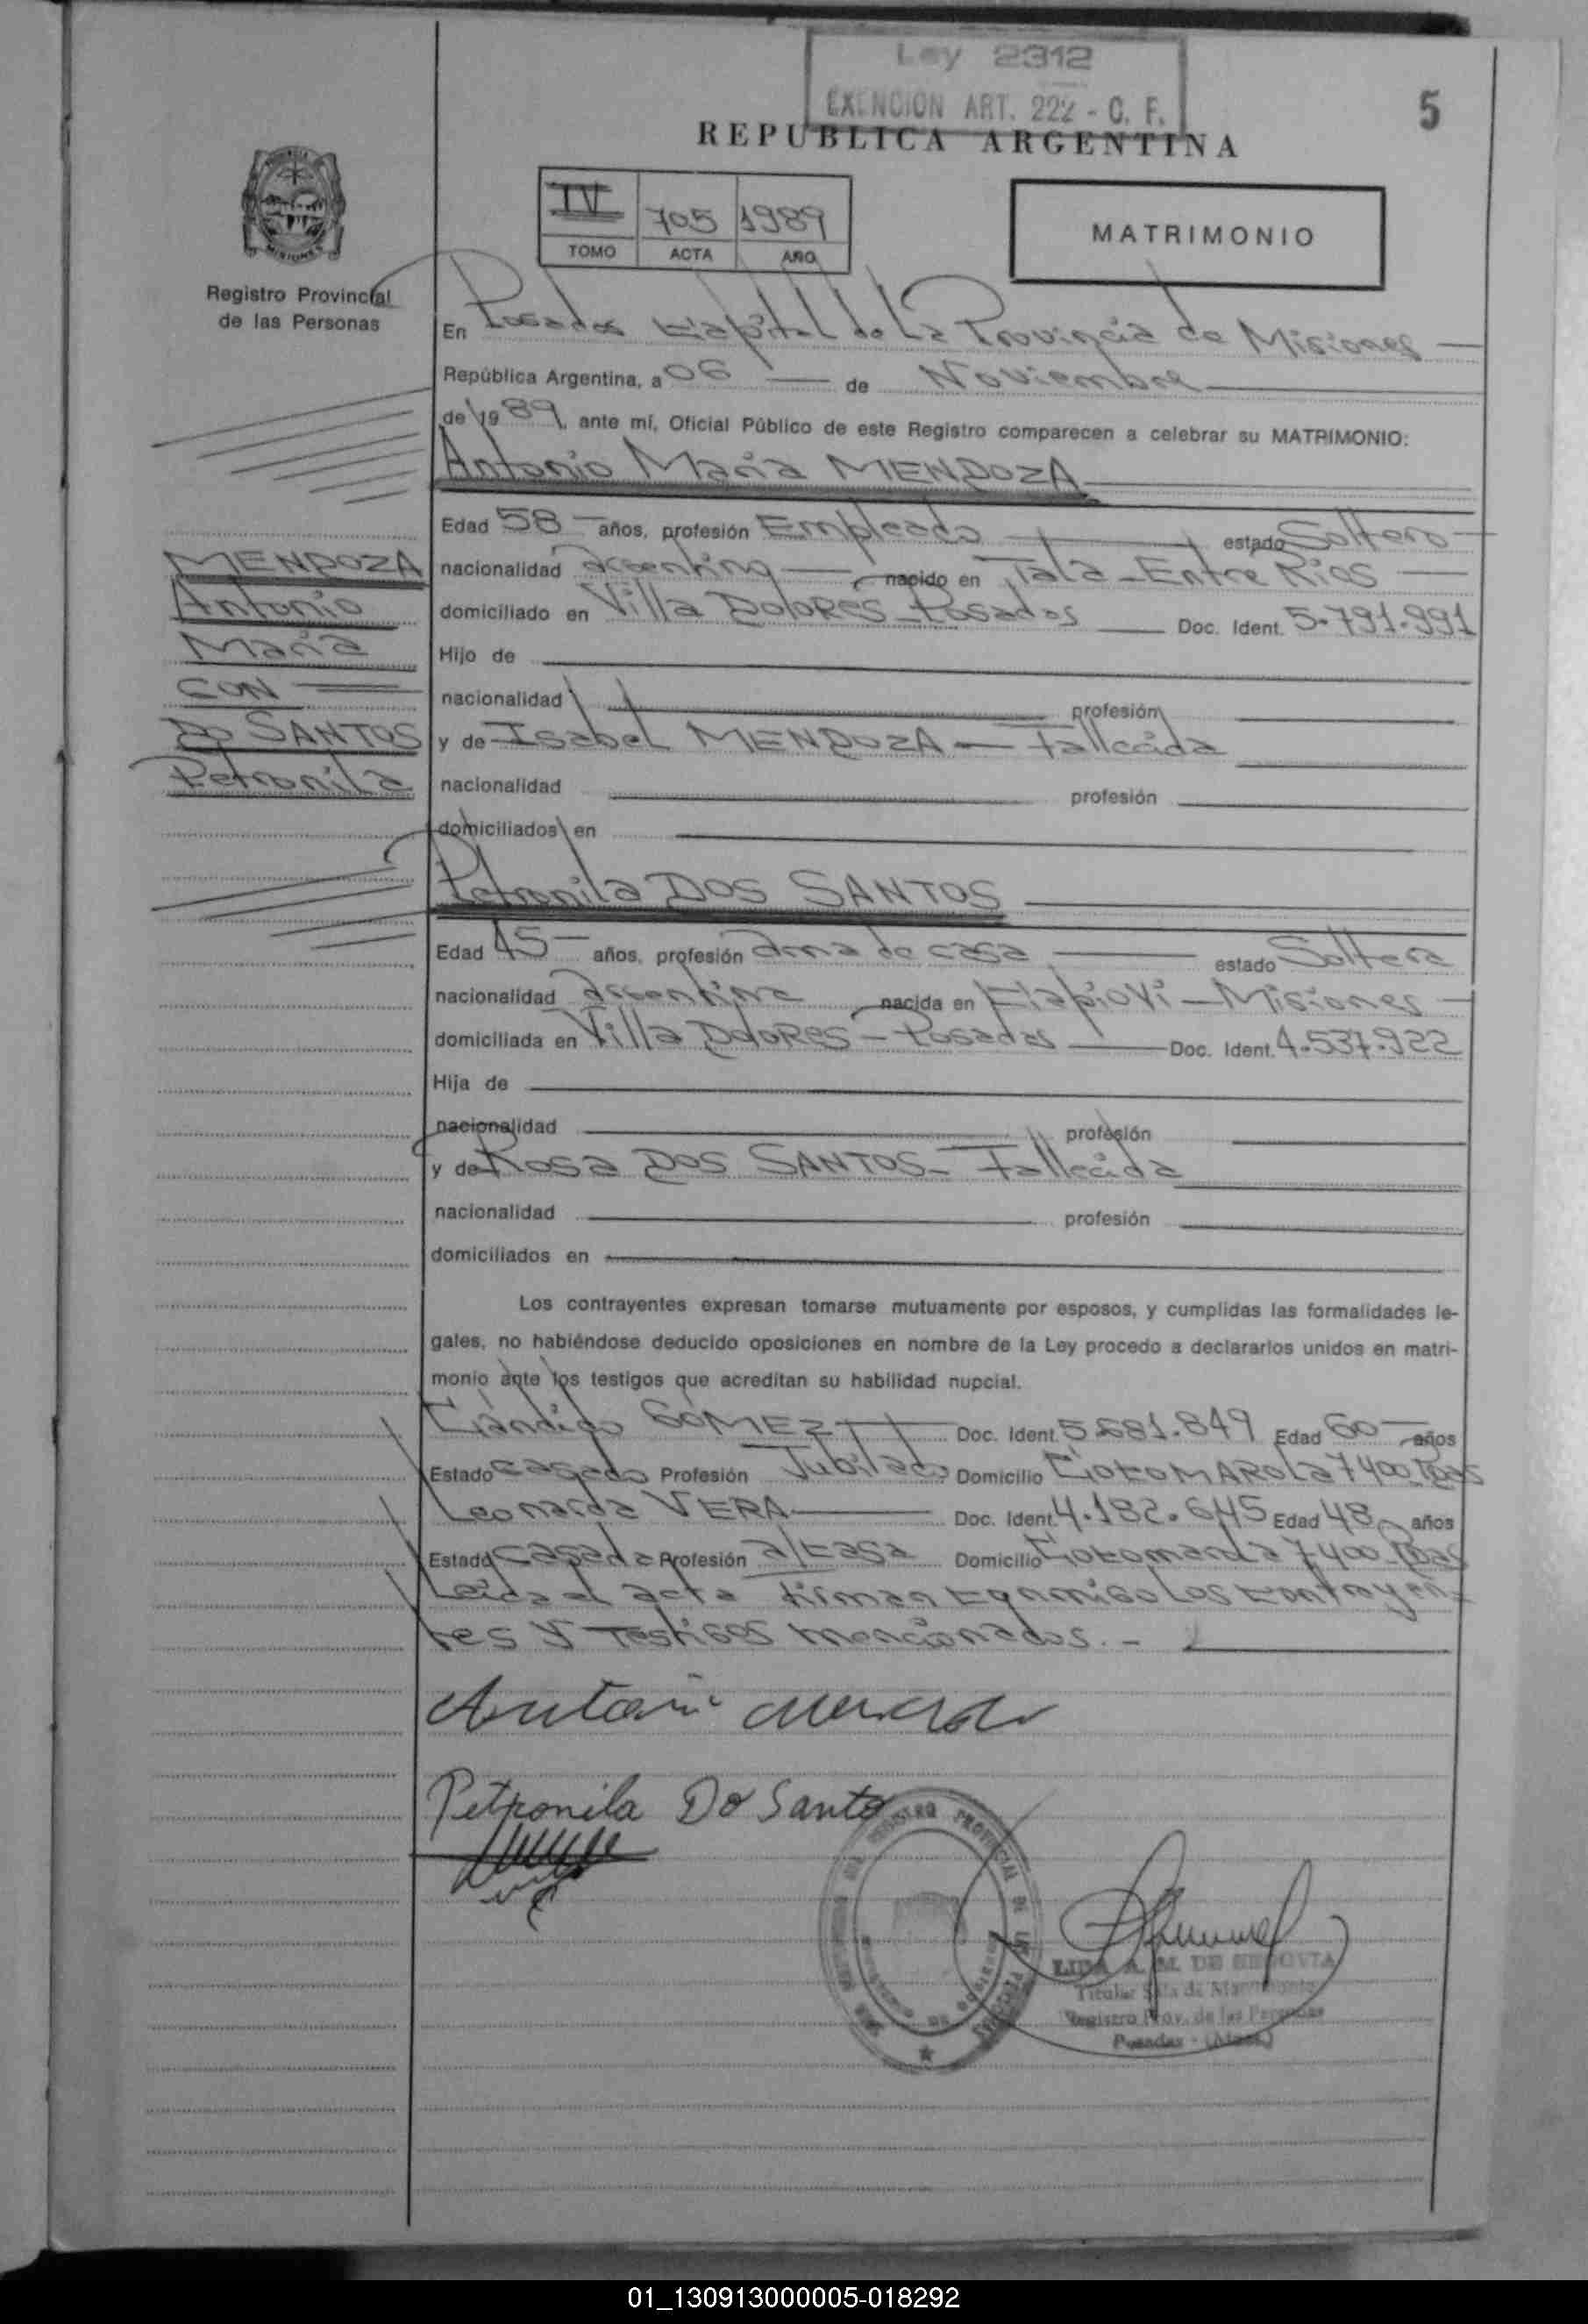 Ley 2312
EXENCION ART. 222 - C. F.
5
REPUBLICA ARGENTINA
IV 705 1989
TOMO ACTA AÑO
MATRIMONIO
Registro Provincial
de las Personas
En Posadas Capital de La Provincia de Misiones
República Argentina, a 06 de Noviembre
de 1989, ante mí, Oficial Público de este Registro comparecen a celebrar su MATRIMONIO:
Antonio Maria MENDOZA
Edad 58 años, profesión Empleado estado Soltero
nacionalidad argentino nacido en Tala - Entre Rios
domiciliado en Villa Dolores - Posadas Doc. Ident. 5.791.991
Hijo de
nacionalidad profesión
y de Isabel MENDOZA - Fallecida
nacionalidad profesión
domiciliados en
MENDOZA
Antonio
Maria
CON
DO SANTOS
Petronila
Petronila DOS SANTOS
Edad 45 años, profesión ama de casa estado Soltera
nacionalidad argentina nacida en - Misiones
domiciliada en Villa Dolores - Posadas Doc. Ident. 4.537.922
Hija de
nacionalidad profesión
y de Rosa DOS SANTOS - Fallecida
nacionalidad profesión
domiciliados en
Los contrayentes expresan tomarse mutuamente por esposos, y cumplidas las formalidades le-
gales, no habiéndose deducido oposiciones en nombre de la Ley procedo a declararlos unidos en matri-
monio ante los testigos que acreditan su habilidad nupcial.
Cándido GÓMEZ Doc. Ident. 5.681.849 Edad 60 años
Estado casado Profesión Jubilado Domicilio 7400 Pdas
Leonarda VERA Doc. Ident. 4.182.645 Edad 48 años
Estado casada Profesión a/casa Domicilio 7400 Pdas
Leida el acta firman conmigo los contrayen-
tes y testigos mencionados. -
Petronila Do Santo
LIDA A. M. DE SEGOVIA
Titular Sala de Matrimonio
Registro Prov. de las Personas
Posadas - (Mnes)
01_130913000005-018292